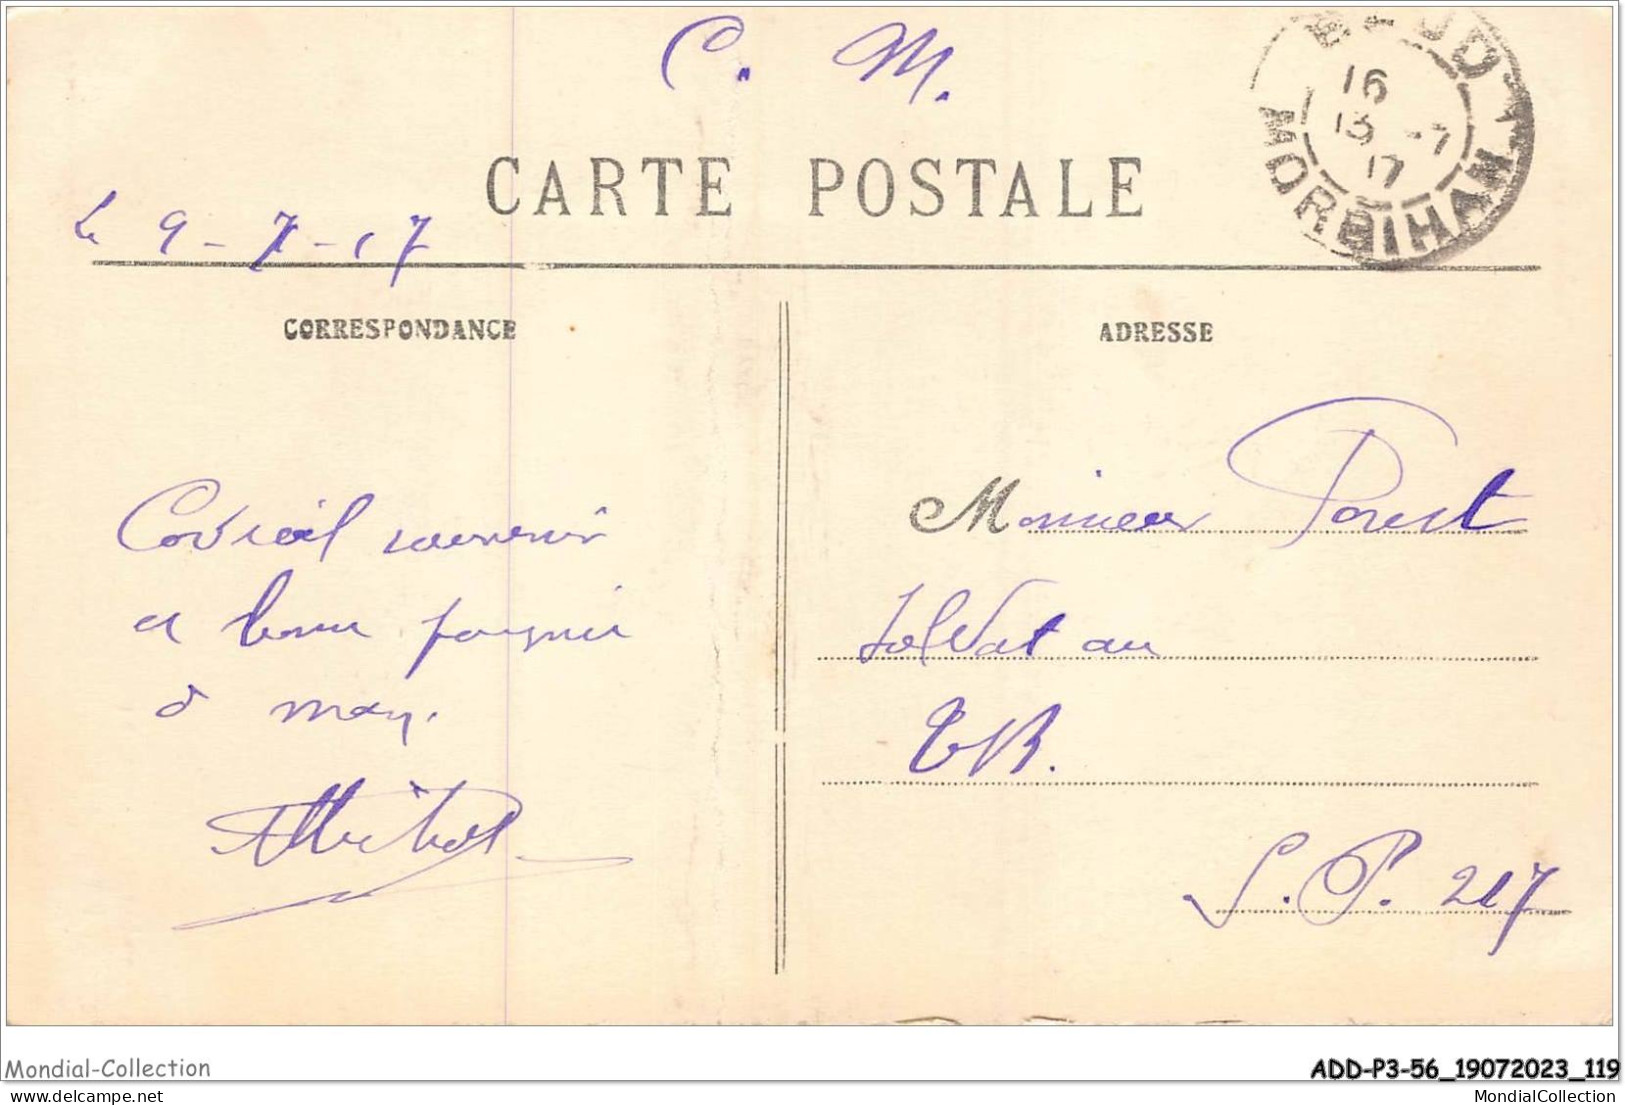 C. M.
BAUD
16
13 -7
17
MORBIHAN
CARTE POSTALE
Le 9-7-17
CORRESPONDANCE
ADRESSE
Monsieur Forest
Cordial souvenir
et bonne poignée
d main.
Soldat au
TR.
S. P. 217
Mondial-Collection
ADD-P3-56_19072023_119
delcampe.net
MondialCollection